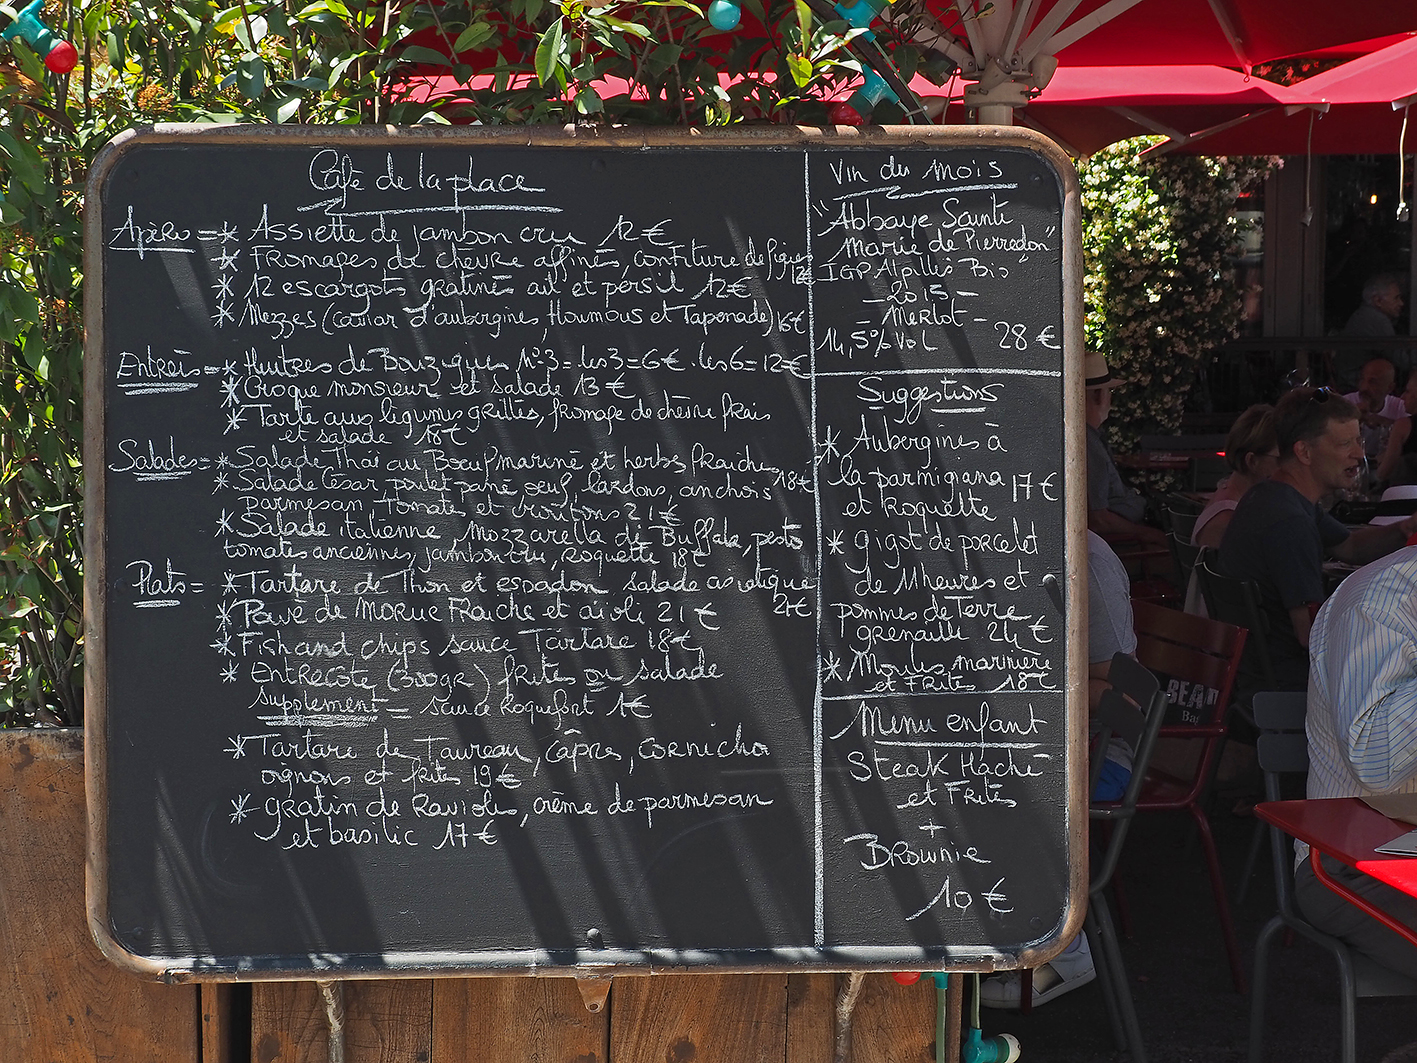 Café de la place
Apéro = * Assiette de jambon cru 12 €
* Fromages de chèvre affinés, confiture de figues
12€
* 12 escargots gratinés ail et persil 12€
* Mezzes (caviar d'aubergines, Houmous et Tapenade) 16€
Entrées = * Huitres de Bouzigues N°3 = les 3 = 6€ . les 6 = 12€
* Croque monsieur et salade 13 €
* Tarte aux légumes grillés, fromage de chèvre frais
et salade 18€
Salades = * Salade Thaï au Boeuf mariné et herbes fraiches
18€
* Salade César poulet pané, oeuf, lardons, anchois
Parmesan, Tomates et croûtons 21€
* Salade italienne, Mozzarella di Buffala, pesto
tomates anciennes, jambon cru, Roquette 18€
Plats = * Tartare de Thon et espadon salade asiatique
21€
* Pavé de Morue Fraiche et aïoli 21 €
* Fish and chips sauce Tartare 18€
* Entrecôte (300gr) frites ou salade
supplément = sauce Roquefort 1€
* Tartare de Taureau, câpres, cornichon
oignons et frites 19 €
* Gratin de Ravioles, crème de parmesan
et basilic 17 €
Vin du mois
"Abbaye Sainte
Marie de Pierredon"
IGP Alpilles Bio
- 2015 -
- Merlot -
14,5% Vol 28 €
Suggestions
* Aubergines à
la parmigiana 17 €
et Roquette
* gigot de porcelet
de 11 heures et
pommes de Terre
grenaille 24 €
* Moules marinière
et Frites 18€
Menu enfant
Steak Haché
et Frites
+
Brownie
10 €
BEAN
Bag